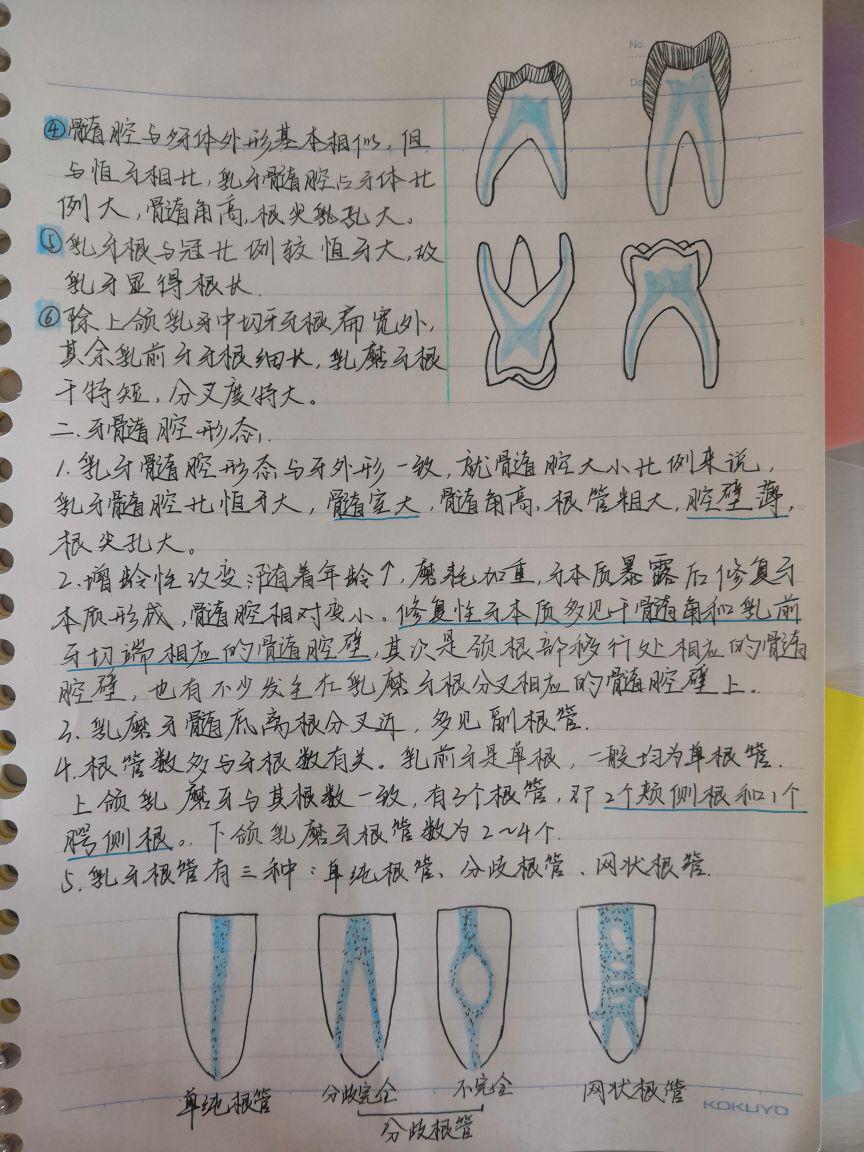 No.
Da
④髓腔与牙体外形基本相似,但
与恒牙相比,乳牙髓腔占牙体比
例大,髓角高,根尖乳孔大。
⑤乳牙根与冠比例较恒牙大,故
乳牙显得根长.
⑥除上颌乳牙中切牙牙根扁宽外,
其余乳前牙牙根细长,乳磨牙根
干特短,分叉度特大。
二.牙髓腔形态.
1.乳牙髓腔形态与牙外形一致,就髓腔大小比例来说,
乳牙髓腔比恒牙大,髓室大,髓角高,根管粗大,腔壁薄,
根尖孔大。
2.增龄性改变:随着年龄↑,磨耗加重,牙本质暴露后修复牙
本质形成,髓腔相对变小。修复性牙本质多见于髓角和乳前
牙切端相应的髓腔壁,其次是颈根部移行处相应的髓
腔壁,也有不少发生在乳磨牙根分叉相应的髓腔壁上。
3.乳磨牙髓底离根分叉近,多见副根管.
4.根管数多与牙根数有关。乳前牙是单根,一般均为单根管.
上颌乳磨牙与其根数一致,有3个根管,即2个颊侧根和1个
腭侧根。下颌乳磨牙根管数为2~4个.
5.乳牙根管有三种:单纯根管、分歧根管、网状根管.
单纯根管 分歧完全 不完全 网状根管
分歧根管
KOKUYO